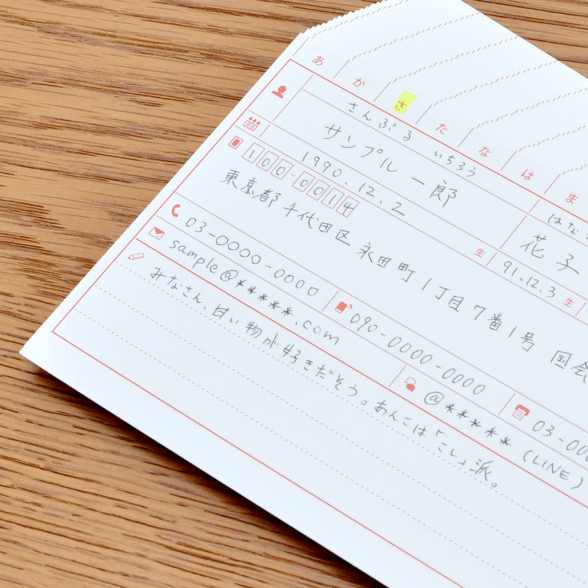 あ か さ た な は ま
さんぷる いちろう はな
サンプル 一郎 花子
1990.12.2 生 91.12.3 生
100-0014
東京都 千代田区 永田町 1丁目7番1号 国会
03-0000-0000 090-0000-0000 03-00
sample@*****.com @*****(LINE)
みなさん、甘い物が好きだそう。あんこは「こし」派。